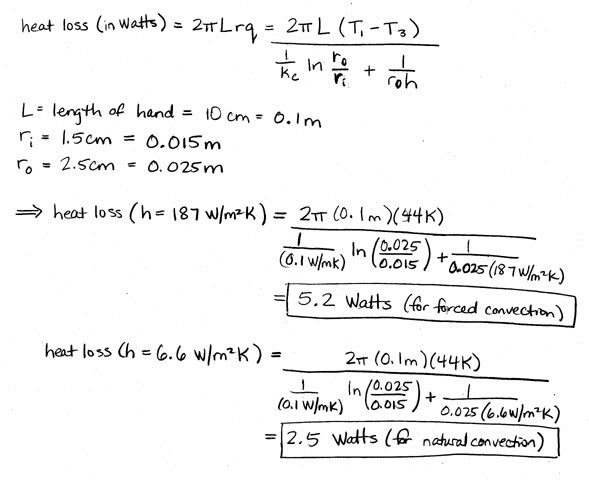 heat loss (in Watts) = 2πLrq = 2πL (T₁-T₃) / (1/kc ln ro/ri + 1/roh)
L = length of hand = 10 cm = 0.1m
ri = 1.5cm = 0.015m
ro = 2.5cm = 0.025m
⇒ heat loss (h= 187 W/m²K) = 2π (0.1m)(44K) / (1/(0.1 W/mK) ln (0.025/0.015) + 1/0.025(187 W/m²K))
= 5.2 Watts (for forced convection)
heat loss (h = 6.6 W/m²K) = 2π (0.1m)(44K) / (1/(0.1 W/mK) ln (0.025/0.015) + 1/0.025(6.6W/m²K))
= 2.5 Watts (for natural convection)